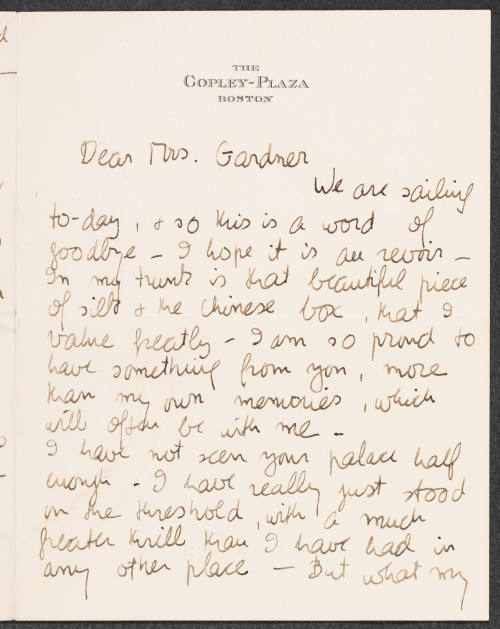 THE
COPLEY-PLAZA
BOSTON
Dear Mrs. Gardner
We are sailing
to-day, & so this is a word of
goodbye – I hope it is au revoir –
In my trunk is that beautiful piece
of silk & the Chinese box, that I
value greatly – I am so proud to
have something from you, more
than my own memories, which
will often be with me –
I have not seen your palace half
enough – I have really just stood
on the threshold, with a much
greater thrill than I have had in
any other place – But what my